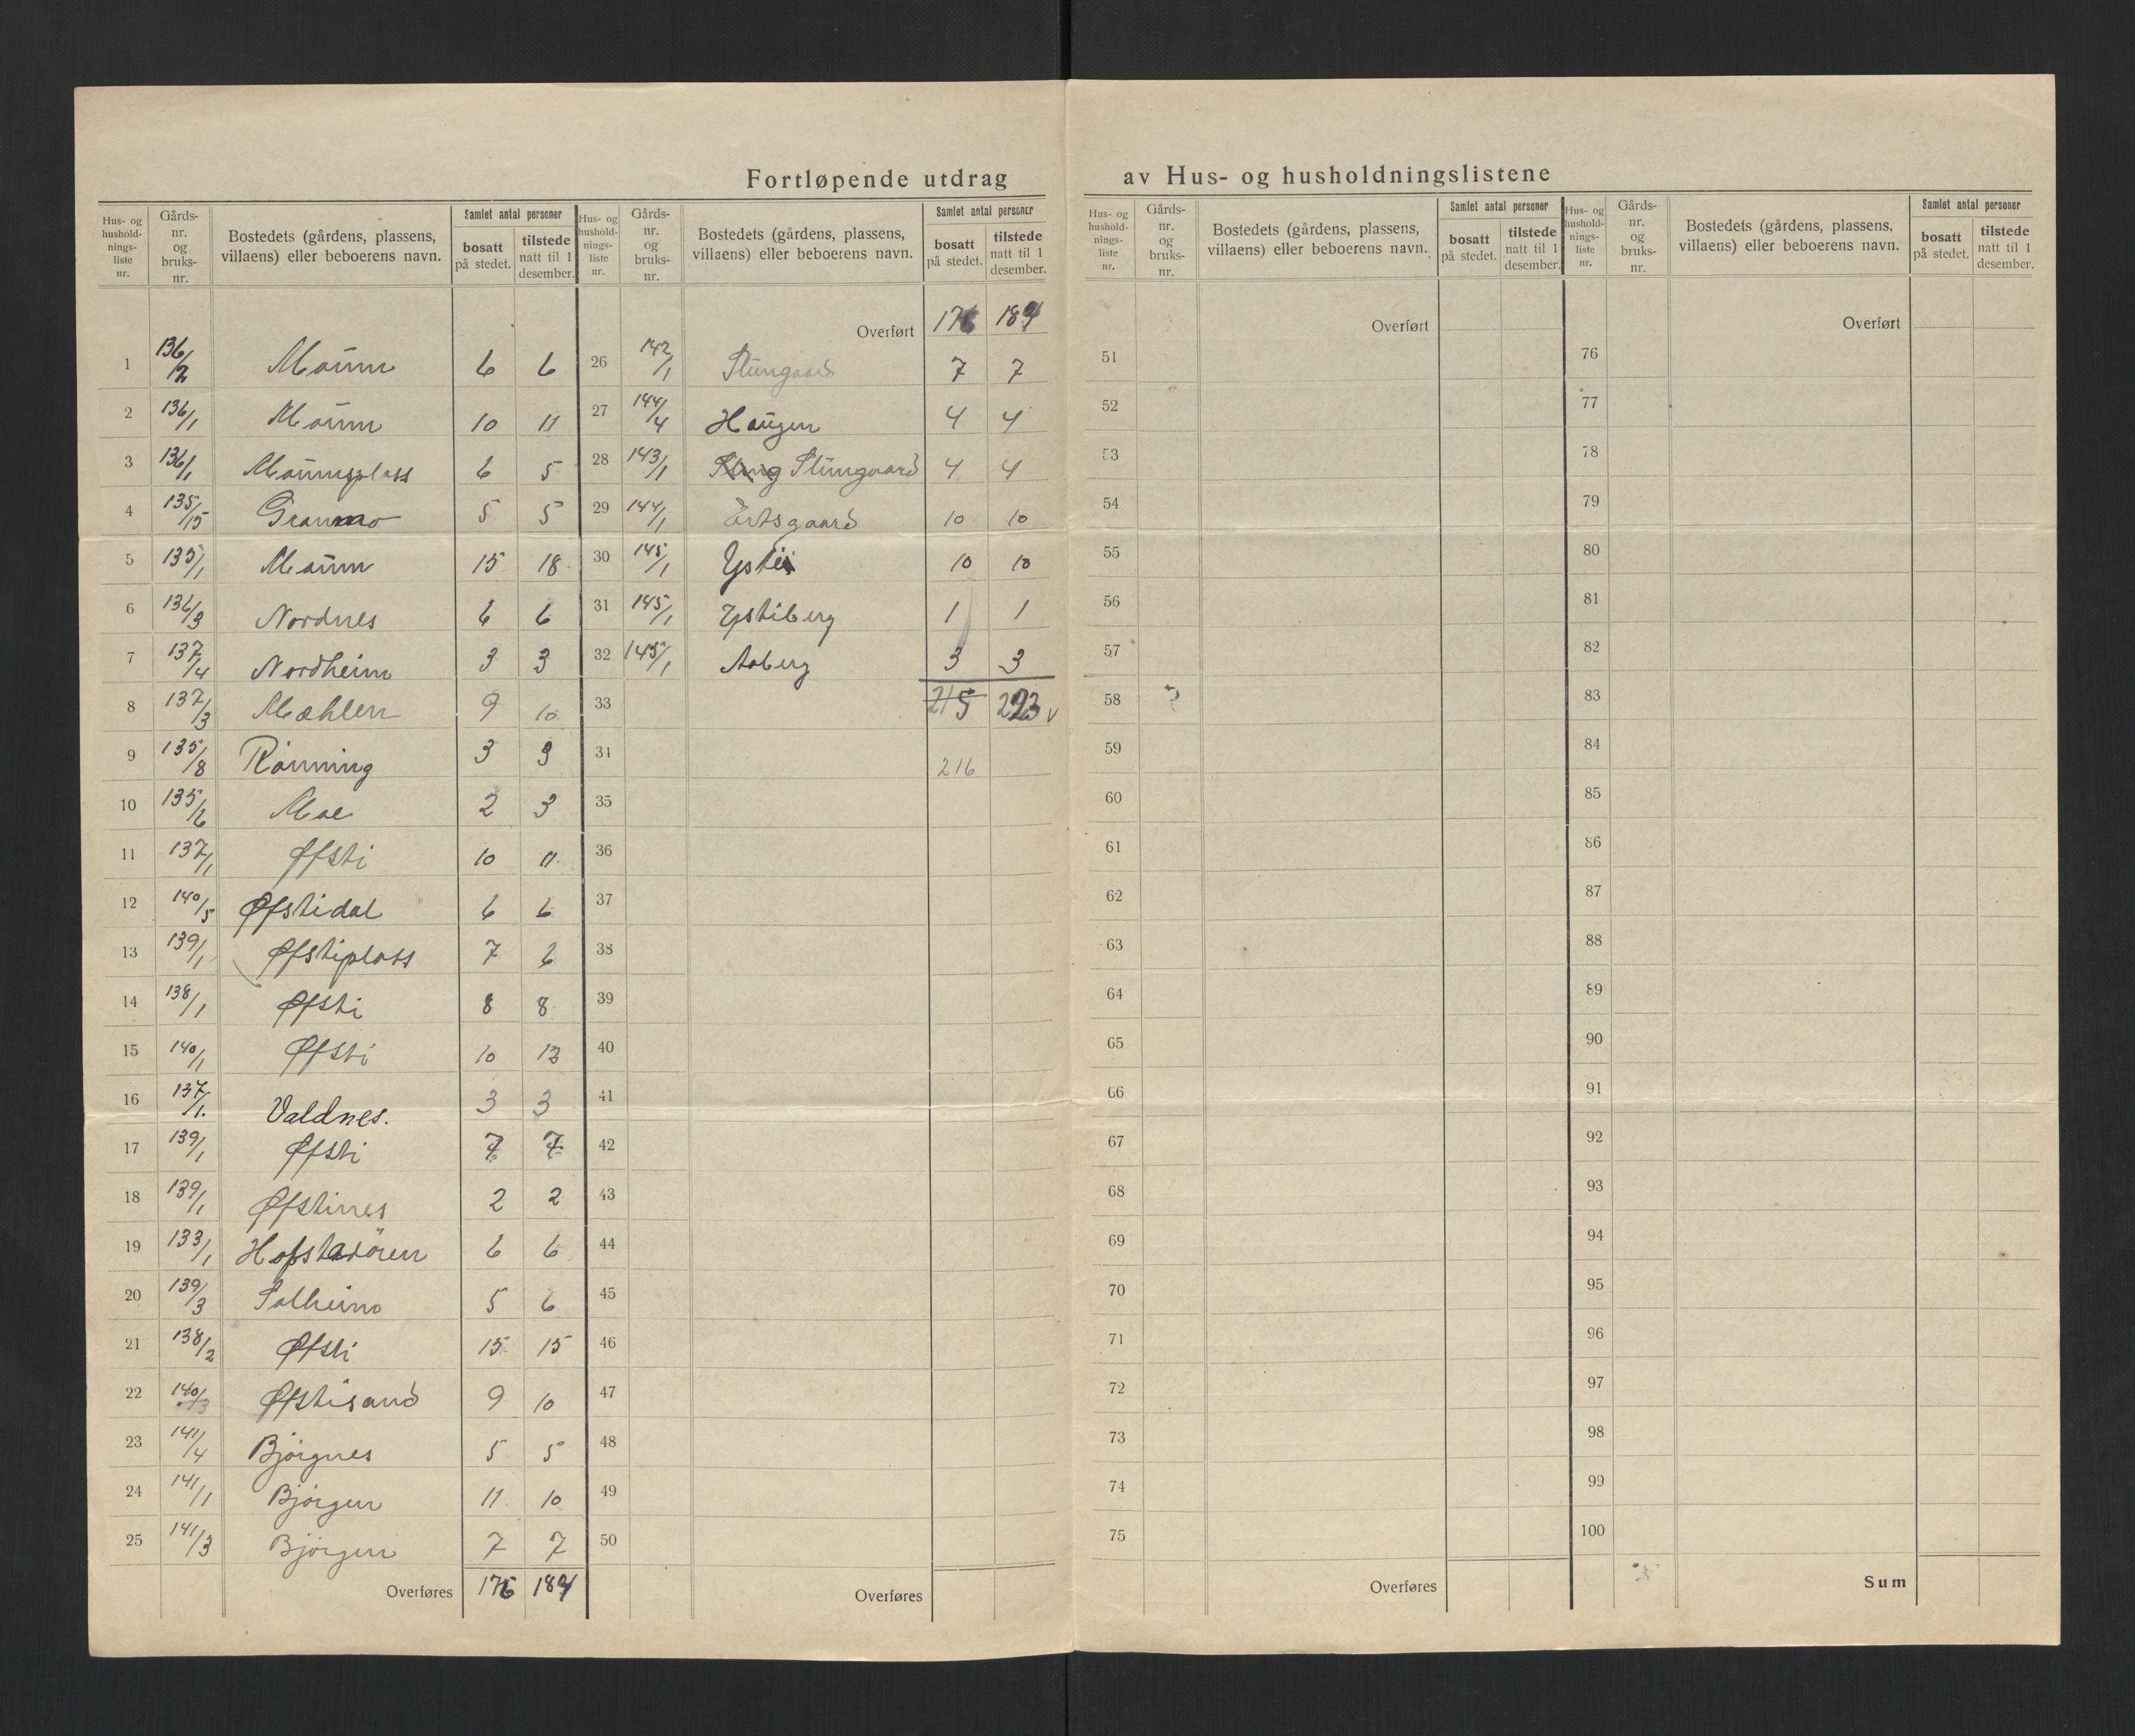 Fortløpende utdrag av Hus- og husholdningslistene
Hus- og husholdnings-liste nr. | Gårds-nr. og bruks-nr. | Bostedets (gårdens, plassens, villaens) eller beboerens navn. | Samlet antal personer | bosatt på stedet. | tilstede natt til 1 desember.
1 136/2 Maûm 6 6
2 136/1 Maûm 10 11
3 136/1 Maûmsplass 6 5
4 135/15 Granmo 5 5
5 135/1 Maûm 15 18
6 136/3 Nordnes 6 6
7 137/4 Nordheim 3 3
8 137/3 Mæhlen 9 10
9 135/8 Rönning 3 3
10 135/6 Moe 2 3
11 137/1 Øfsti 10 11
12 140/5 Øfstidal 6 6
13 139/1 Øfstiplass 7 6
14 138/1 Øfsti 8 8
15 140/1 Øfsti 10 12
16 137/1. Valdnes. 3 3
17 139/1 Øfsti 7 7
18 139/1 Øfstines 2 2
19 133/1 Hofstadören 6 6
20 139/3 Solheim 5 6
21 138/2 Øfsti 15 15
22 140/3 Øfstisand 9 10
23 141/4 Bjørgnes 5 5
24 141/1 Bjørgen 11 10
25 141/3 Bjørgen 7 7
Overføres 176 184
Hus- og husholdnings-liste nr. | Gårds-nr. og bruks-nr. | Bostedets (gårdens, plassens, villaens) eller beboerens navn. | Samlet antal personer | bosatt på stedet. | tilstede natt til 1 desember.
Overført 176 184
26 142/1 7 7
27 144/4 Haûgen 4 4
28 143/1 4 4
29 144/1 Ertsgaard 10 10
30 145/1 Ystii 10 10
31 145/1 Ystiberg 1 1
32 145/1 Aaberg 3 3
33 215 223 v
34 216
35
36
37
38
39
40
41
42
43
44
45
46
47
48
49
50
Overføres
Hus- og husholdnings-liste nr. | Gårds-nr. og bruks-nr. | Bostedets (gårdens, plassens, villaens) eller beboerens navn. | Samlet antal personer | bosatt på stedet. | tilstede natt til 1 desember.
Overført
51
52
53
54
55
56
57
58
59
60
61
62
63
64
65
66
67
68
69
70
71
72
73
74
75
Overføres
Hus- og husholdnings-liste nr. | Gårds-nr. og bruks-nr. | Bostedets (gårdens, plassens, villaens) eller beboerens navn. | Samlet antal personer | bosatt på stedet. | tilstede natt til 1 desember.
Overført
76
77
78
79
80
81
82
83
84
85
86
87
88
89
90
91
92
93
94
95
96
97
98
99
100
Sum